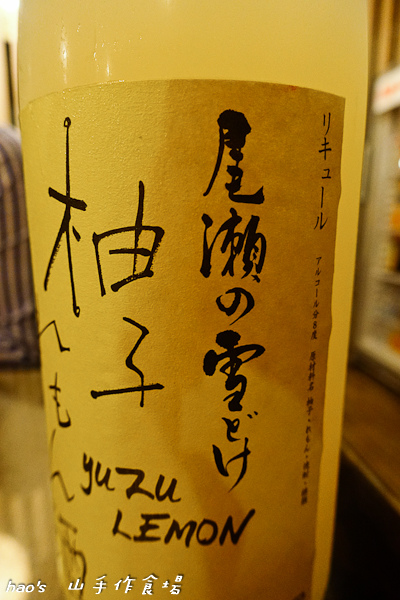 リキュール
アルコール分8度 原材料名 柚子・れもん・焼酎・糖類
尾瀬の雪どけ
柚子
れもん酒
yuzu
LEMON
hao's 山手作食場